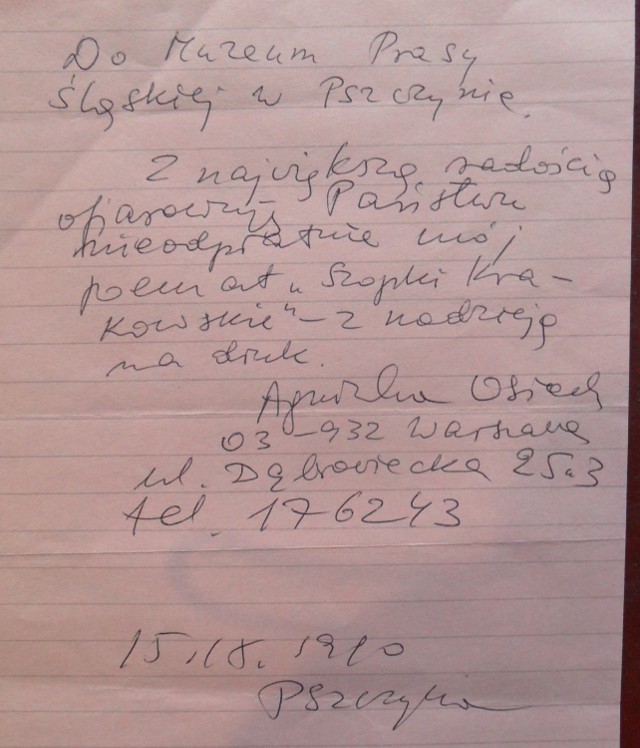 Do Muzeum Prasy
Śląskiej w Pszczynie.
Z największą radością
ofiarowuję Państwu
nieodpłatnie mój
poemat „Szopki Kra-
kowskie” – z nadzieją
na druk.
Agnieszka Osiecka
03-932 Warszawa
ul. Dąbrowiecka 25
tel. 176243
1990
Pszczyna